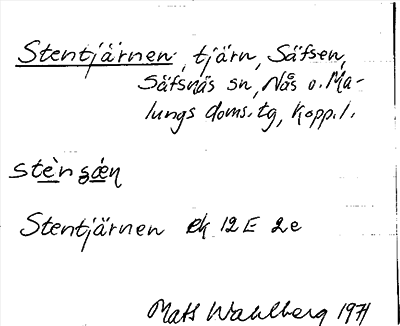 Stentjärnen, tjärn, Säfsen,
Säfsnäs sn, Nås o. Ma-
lungs doms.tg, Kopp.l.
Stentjärnen ek 12E 2e
Mats Wahlberg 1971